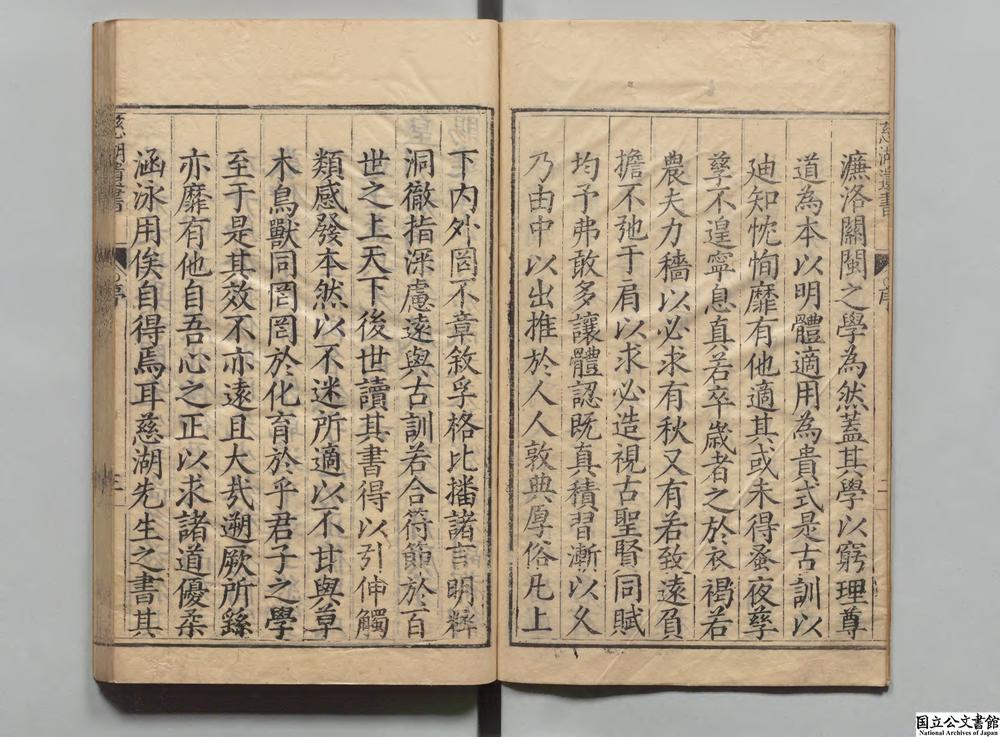 濂洛關閩之學為然蓋其學以窮理尊
道為本以明體適用為貴式是古訓以
廸知忱恂靡有他適其或未得蚤夜孳
孳不遑寧息真若卒歲者之於衣褐若
農夫力穡以必求有秋又有若致遠負
擔不弛于肩以求必造視古聖賢同賦
均予弗敢多讓體認既真積習漸以久
乃由中以出推於人人敦典厚俗凡上
下内外罔不章敘孚格比播諸言明粹
洞徹指深慮遠與古訓若合符節於百
世之上天下後世讀其書得以引伸觸
類感發本然以不迷所適以不甘與草
木鳥獸同罔罔於化育於乎君子之學
至于是其效不亦遠且大㢤遡厥所繇
亦靡有他自吾心之正以求諸道優柔
涵泳用俟自得焉耳慈湖先生之書其
慈湖遺書
序
二
慈湖遺書
序
三
国立公文書館
National Archives of Japan